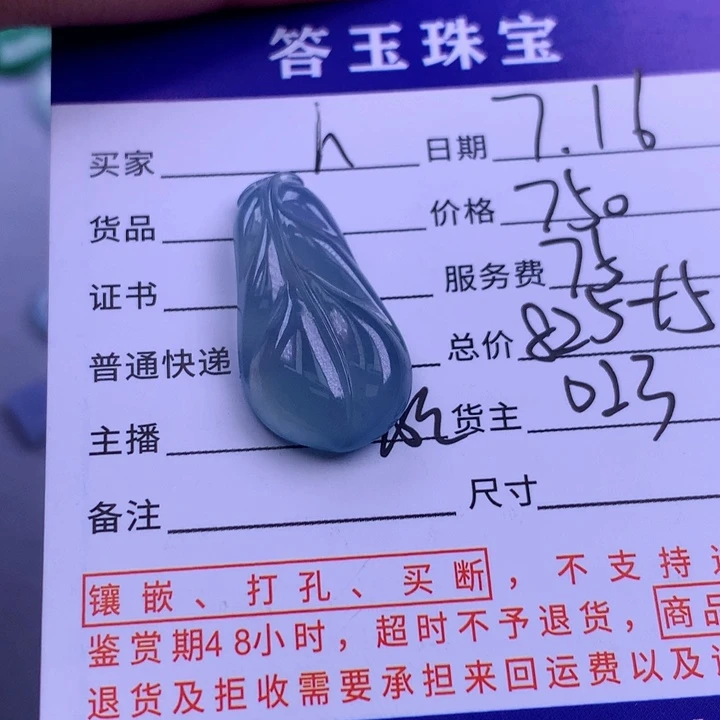 答玉珠宝
买家 h 日期 7.16
货品 价格 750
证书 服务费 75
普通快递 总价 825+5
主播 货主 023
备注 尺寸
镶嵌、打孔、买断，不支持
鉴赏期48小时，超时不予退货，商品
退货及拒收需要承担来回运费以及